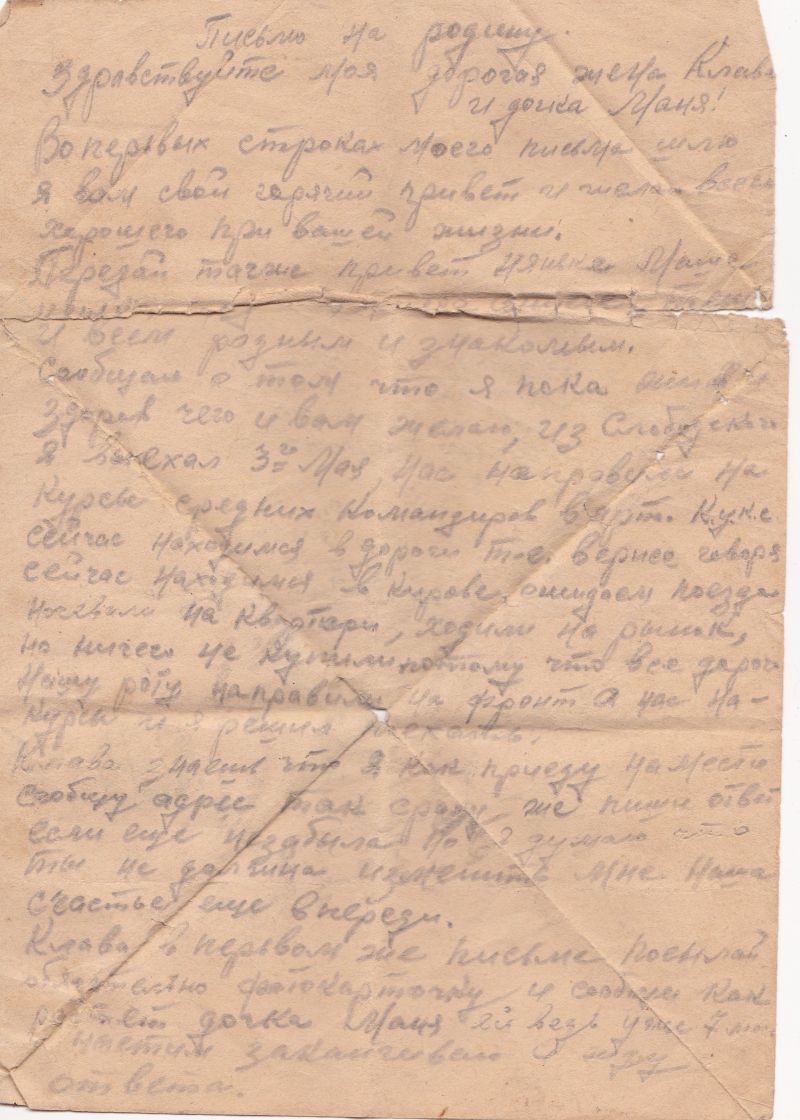 Письмо на родину.
Здравствуйте моя дорогая жена Клава
и дочка Маня!
Во первых строках моего письма шлю
я вам свой горячий привет и желаю всего
хорошего при вашей жизни.
Передай также привет няньке Маше
и всем родным и знакомым.
Сообщаю о том что я пока жив и
здоров чего и вам желаю, из Слободского
я выехал 3го Мая, нас направили на
курсы средних командиров в арт. К.У.К.С.
сейчас находимся в дороги т.е. вернее говоря
сейчас находимся в Кирове, ожидаем поезда
ночевали на квартери, ходили на рынок,
но ничего не купили потому что все дорого
Нашу роту направили на фронт а нас на-
курсы и я решил поехать.
Клава знаешь что я как приеду на место
сообщу адрес так сразу же пиши ответ
если еще незабыла но я думаю что
ты не должна изменить мне наша
счастье еще впереди.
Клава в первом же письме посылай
обязательно фотокарточку и сообщи как
растет дочка Маня ей ведь уже 7 м.
на етим заканчиваю и жду
ответа.